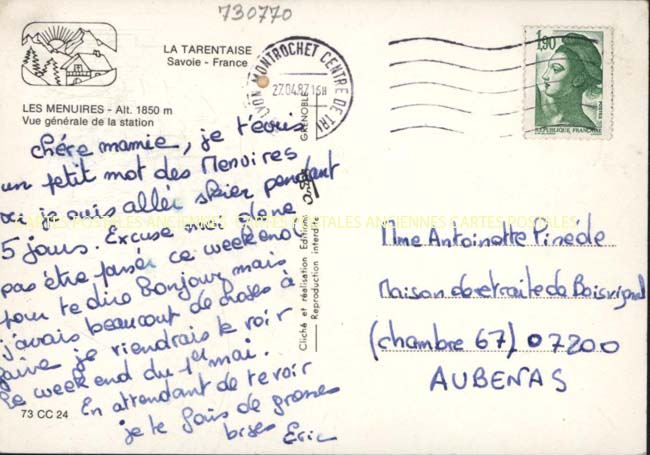 730770
LA TARENTAISE
Savoie - France
LES MENUIRES - Alt. 1850 m
Vue générale de la station
chère mamie, je t'écris
un petit mot des Menuires
où je suis allée skier pendant
5 jours. Excuse moi de ne
pas être passée ce weekend
pour te dire bonjour mais
j'avais beaucoup de choses à
faire je viendrais te voir
le weekend du 1er mai.
En attendant de te voir
je te fais de grosses
bises Eric
73 CC 24
Cliché et réalisation Editions
Reproduction interdite
GRENOBLE
LYON MONTROCHET CENTRE DE TRI
27.04.87 16H
1,90
POSTES
REPUBLIQUE FRANCAISE
CARTES POSTALES ANCIENNES CARTES POSTALES ANCIENNES CARTES POSTALES
Mme Antoinette Pinède
Maison de retraite de Boisvignal
(chambre 67) 07200
AUBENAS